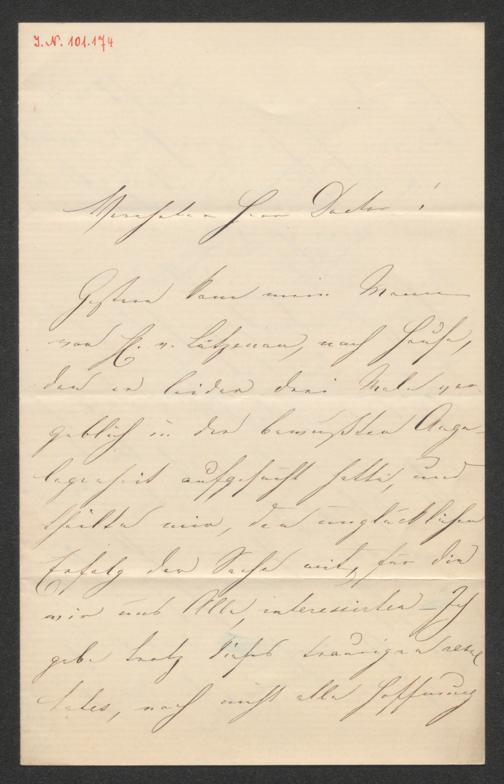 I. N. 101.174
Verehrter Herr Doctor!
Gestern kam mein Mann
von H. v. Lützenau, nach Hause,
den er leider drei Male ver-
geblich in der bewußten Ange-
legenheit aufgesucht hatte, und
theilte mir, den unglücklichen
Erfolg der Sache mit, für die
wir uns Alle, interessirten. Ich
gebe trotz dieses traurigen resul
tates, noch nicht alle Hoffnung